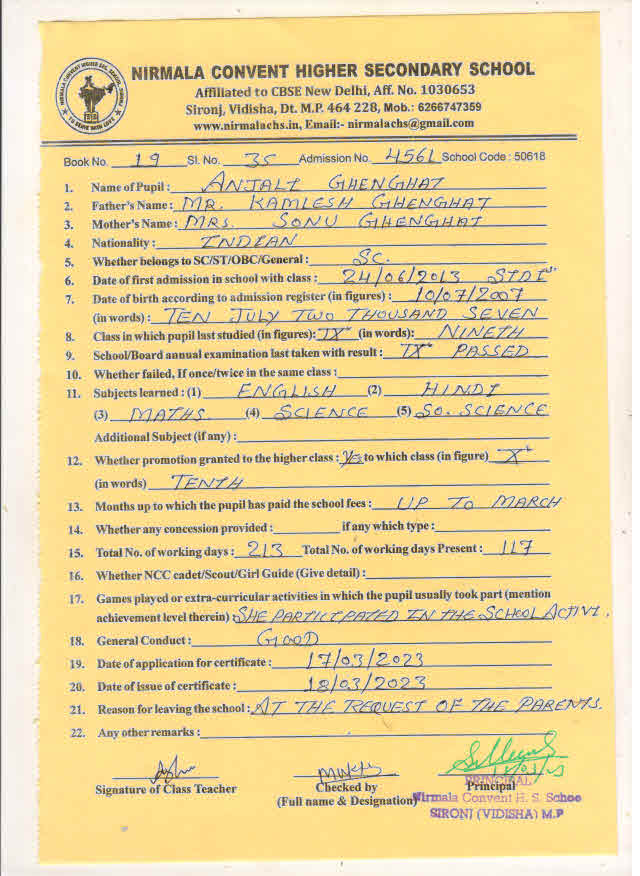 NIRMALA CONVENT HIGHER SECONDARY SCHOOL
Affiliated to CBSE New Delhi, Aff. No. 1030653
Sironj, Vidisha, Dt. M.P. 464 228, Mob.: 6266747359
www.nirmalachs.in, Email:- nirmalachs@gmail.com
Book No. 19 Sl. No. 35 Admission No. 4561 School Code : 50618
1. Name of Pupil : ANJALI GHENGHAT
2. Father's Name : MR. KAMLESH GHENGHAT
3. Mother's Name : MRS. SONU GHENGHAT
4. Nationality : INDIAN
5. Whether belongs to SC/ST/OBC/General : SC.
6. Date of first admission in school with class : 24/06/2013 STD I
7. Date of birth according to admission register (in figures) : 10/07/2007
(in words) : TEN JULY TWO THOUSAND SEVEN
8. Class in which pupil last studied (in figures): IX (in words): NINETH
9. School/Board annual examination last taken with result : IX PASSED
10. Whether failed, If once/twice in the same class :
11. Subjects learned : (1) ENGLISH (2) HINDI
(3) MATHS. (4) SCIENCE (5) SO. SCIENCE
Additional Subject (if any) :
12. Whether promotion granted to the higher class : Yes to which class (in figure) X
(in words) TENTH
13. Months up to which the pupil has paid the school fees : UP TO MARCH
14. Whether any concession provided : if any which type :
15. Total No. of working days : 213 Total No. of working days Present : 117
16. Whether NCC cadet/Scout/Girl Guide (Give detail) :
17. Games played or extra-curricular activities in which the pupil usually took part (mention
achievement level therein) : SHE PARTICIPATED IN THE SCHOOL ACTIVI.
18. General Conduct : GOOD
19. Date of application for certificate : 17/03/2023
20. Date of issue of certificate : 18/03/2023
21. Reason for leaving the school : AT THE REQUEST OF THE PARENTS.
22. Any other remarks :
Signature of Class Teacher
Checked by
(Full name & Designation)
Principal
PRINCIPAL
Nirmala Convent H. S. Schoo
SIRONJ (VIDISHA) M.P